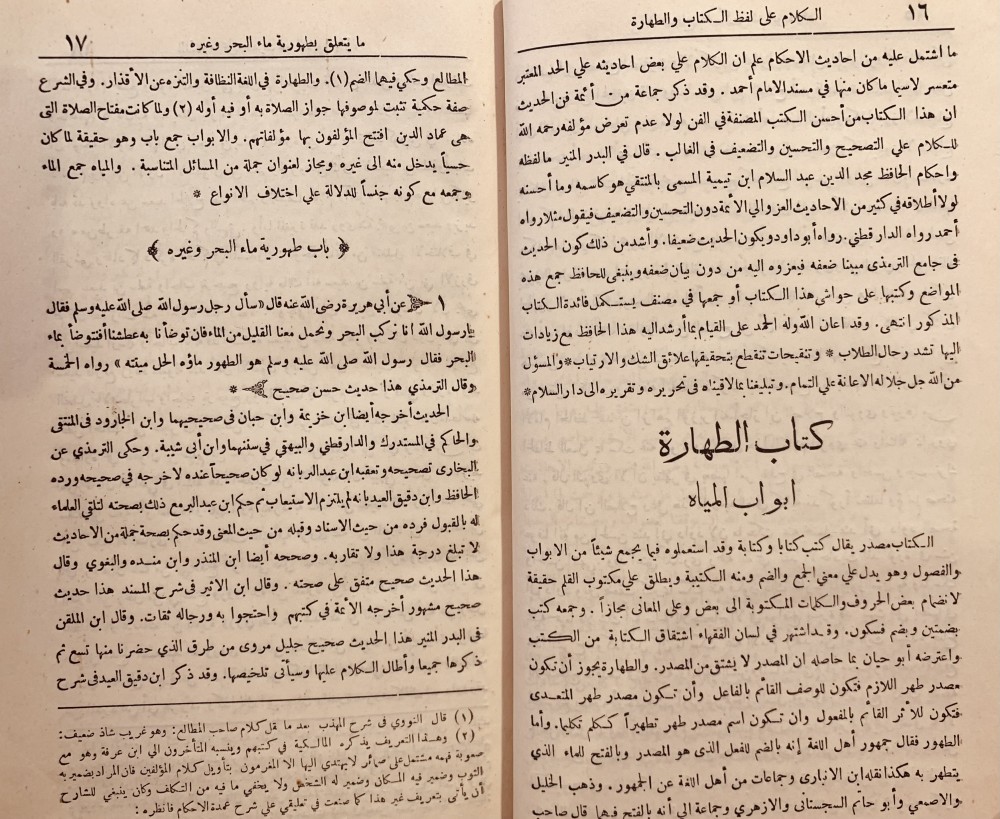 ١٦
الكلام على لفظ الكتاب والطهارة
ما اشتمل عليه من احاديث الاحكام علم ان الكلام علي بعض احاديثه علي الحد المعتبر
متعسر لاسيما ماكان منها في مسند الامام أحمد . وقد ذكر جماعة من أئمة فن الحديث
ان هذا الكتاب من أحسن الكتب المصنفة في الفن لولا عدم تعرض مؤلفه رحمه الله
للكلام علي التصحيح والتحسين والتضعيف في الغالب . قال في البدر المنير مالفظه
واحكام الحافظ مجد الدين عبد السلام ابن تيمية المسمى بالمنتقي هو كاسمه وما أحسنه
لولا أطلاقه في كثير من الاحاديث العزو الي الأئمة دون التحسين والتضعيف فيقول مثلا رواه
أحمد رواه الدار قطني . رواه أبو داود ويكون الحديث ضعيفا . وأشد من ذلك كون الحديث
في جامع الترمذى مبينا ضعفه فيعزوه اليه من دون بيان ضعفه وينبغى للحافظ جمع هذه
المواضع وكتبها على حواشي هذا الكتاب أو جمعها في مصنف يستكمل فائدة الكتاب
المذكور انتهى . وقد اعان الله وله الحمد على القيام بما أرشد اليه هذا الحافظ مع زيادات
اليها تشد رحال الطلاب * وتنقيحات تنقطع بتحقيقها علائق الشك والارتياب * والمسؤل
من الله جل جلاله الاعانة علي التمام . وتبليغنا بما لاقيناه في تحريره وتقريره الى دار السلام *
كتاب الطهارة
ابواب المياه
الكتاب مصدر يقال كتب كتابا وكتابة وقد استعملوه فيما يجمع شيئاً من الابواب
والفصول وهو يدل علي معني الجمع والضم ومنه الكتيبة ويطلق علي مكتوب القلم حقيقة
لانضمام بعض الحروف والكلمات المكتوبة الى بعض وعلى المعانى مجازاً . وجمعه كتب
بضمتين وبضم فسكون . وقد اشتهر في لسان الفقهاء اشتقاق الكتابة من الكتب
واعترضه أبو حيان بما حاصله ان المصدر لا يشتق من المصدر . والطهارة يجوز أن تكون
مصدر طهر اللازم فتكون للوصف القائم بالفاعل وأن تكون مصدر طهر المتعدى
فتكون للأثر القائم بالمفعول وان تكون اسم مصدر طهر تطهيراً ككلم تكليما . وأما
الطهور فقال جمهور أهل اللغة إنه بالضم للفعل الذى هو المصدر وبالفتح للماء الذى
يتطهر به هكذا نقله ابن الانبارى وجماعات من أهل اللغة عن الجمهور . وذهب الخليل
والاصمعي وأبو حاتم السجستانى والازهري وجماعة الى أنه بالفتح فيهما قال صاحب
ما يتعلق بطهورية ماء البحر وغيره
١٧
المطالع وحكي فيهما الضم (١) . والطهارة في اللغة النظافة والتنزه عن الأقذار . وفي الشرع
صفة حكمية تثبت لموصوفها جواز الصلاة به أو فيه أو له (٢) ولما كانت مفتاح الصلاة التى
هى عماد الدين افتتح المؤلفون بها مؤلفاتهم . والابواب جمع باب وهو حقيقة لما كان
حسياً يدخل منه الى غيره ومجاز لعنوان جملة من المسائل المتناسبة . والمياه جمع الماء
وجمعه مع كونه جنساً للدلالة علي اختلاف الانواع *
﴿ باب طهورية ماء البحر وغيره ﴾
١ عن أبي هريرة رضى الله عنه قال «سأل رجل رسول الله صلى الله عليه وسلم فقال
يارسول الله انا نركب البحر ونحمل معنا القليل من الماء فان توضأنا به عطشنا أفنتوضأ بماء
البحر فقال رسول الله صلى الله عليه وسلم هو الطهور ماؤه الحل ميتته » رواه الخمسة
وقال الترمذي هذا حديث حسن صحيح *
الحديث أخرجه أيضا ابن خزيمة وابن حبان فى صحيحيهما وابن الجارود فى المنتقى
والحاكم في المستدرك والدارقطني والبيهقي في سننهما وابن أبى شيبة . وحكى الترمذي عن
البخارى تصحيحه وتعقبه ابن عبد البر بانه لو كان صحيحا عنده لاخرجه في صحيحه ورده
الحافظ وابن دقيق العيد بانه لم يلتزم الاستيعاب ثم حكم ابن عبد البر مع ذلك بصحته لتلقي العلماء
له بالقبول فرده من حيث الاسناد وقبله من حيث المعنى وقد حكم بصحة جملة من الاحاديث
لا تبلغ درجة هذا ولا تقاربه . وصححه أيضا ابن المنذر وابن منده والبغوي وقال
هذا الحديث صحيح متفق على صحته . وقال ابن الاثير فى شرح المسند هذا حديث
صحيح مشهور أخرجه الأئمة في كتبهم واحتجوا به ورجاله ثقات . وقال ابن الملقن
فى البدر المنير هذا الحديث صحيح جليل مروى من طرق الذي حضرنا منها تسع ثم
ذكرها جميعا وأطال الكلام عليها وسيأتى تلخيصها . وقد ذكر ابن دقيق العيد فى شرح
(١) قال النووي فى شرح المهذب بعد ما نقل كلام صاحب المطالع : وهو غريب شاذ ضعيف :
(٢) وهذا التعريف يذكره المالكية في كتبهم وينسبه المتأخرون الي ابن عرفة وهو مع
صعوبة فهمه مشتمل على ضمائر لا يهتدى اليها الا المغرمون بتأويل كلام المؤلفين فان المراد بضمير به
الثوب وضمير فيه المكان وضمير له الشخص ولا يخفي ما فيه من التكلف وكان ينبغي للشارح
أن يأتى بتعريف غير هذا كما صنعت في تعليقي على شرح عمدة الاحكام فانظره :